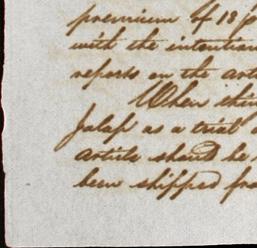 premium of 18 p
with the intention
reports on the arti
When shi
Jalap as a trial
article should be
been shipped fro